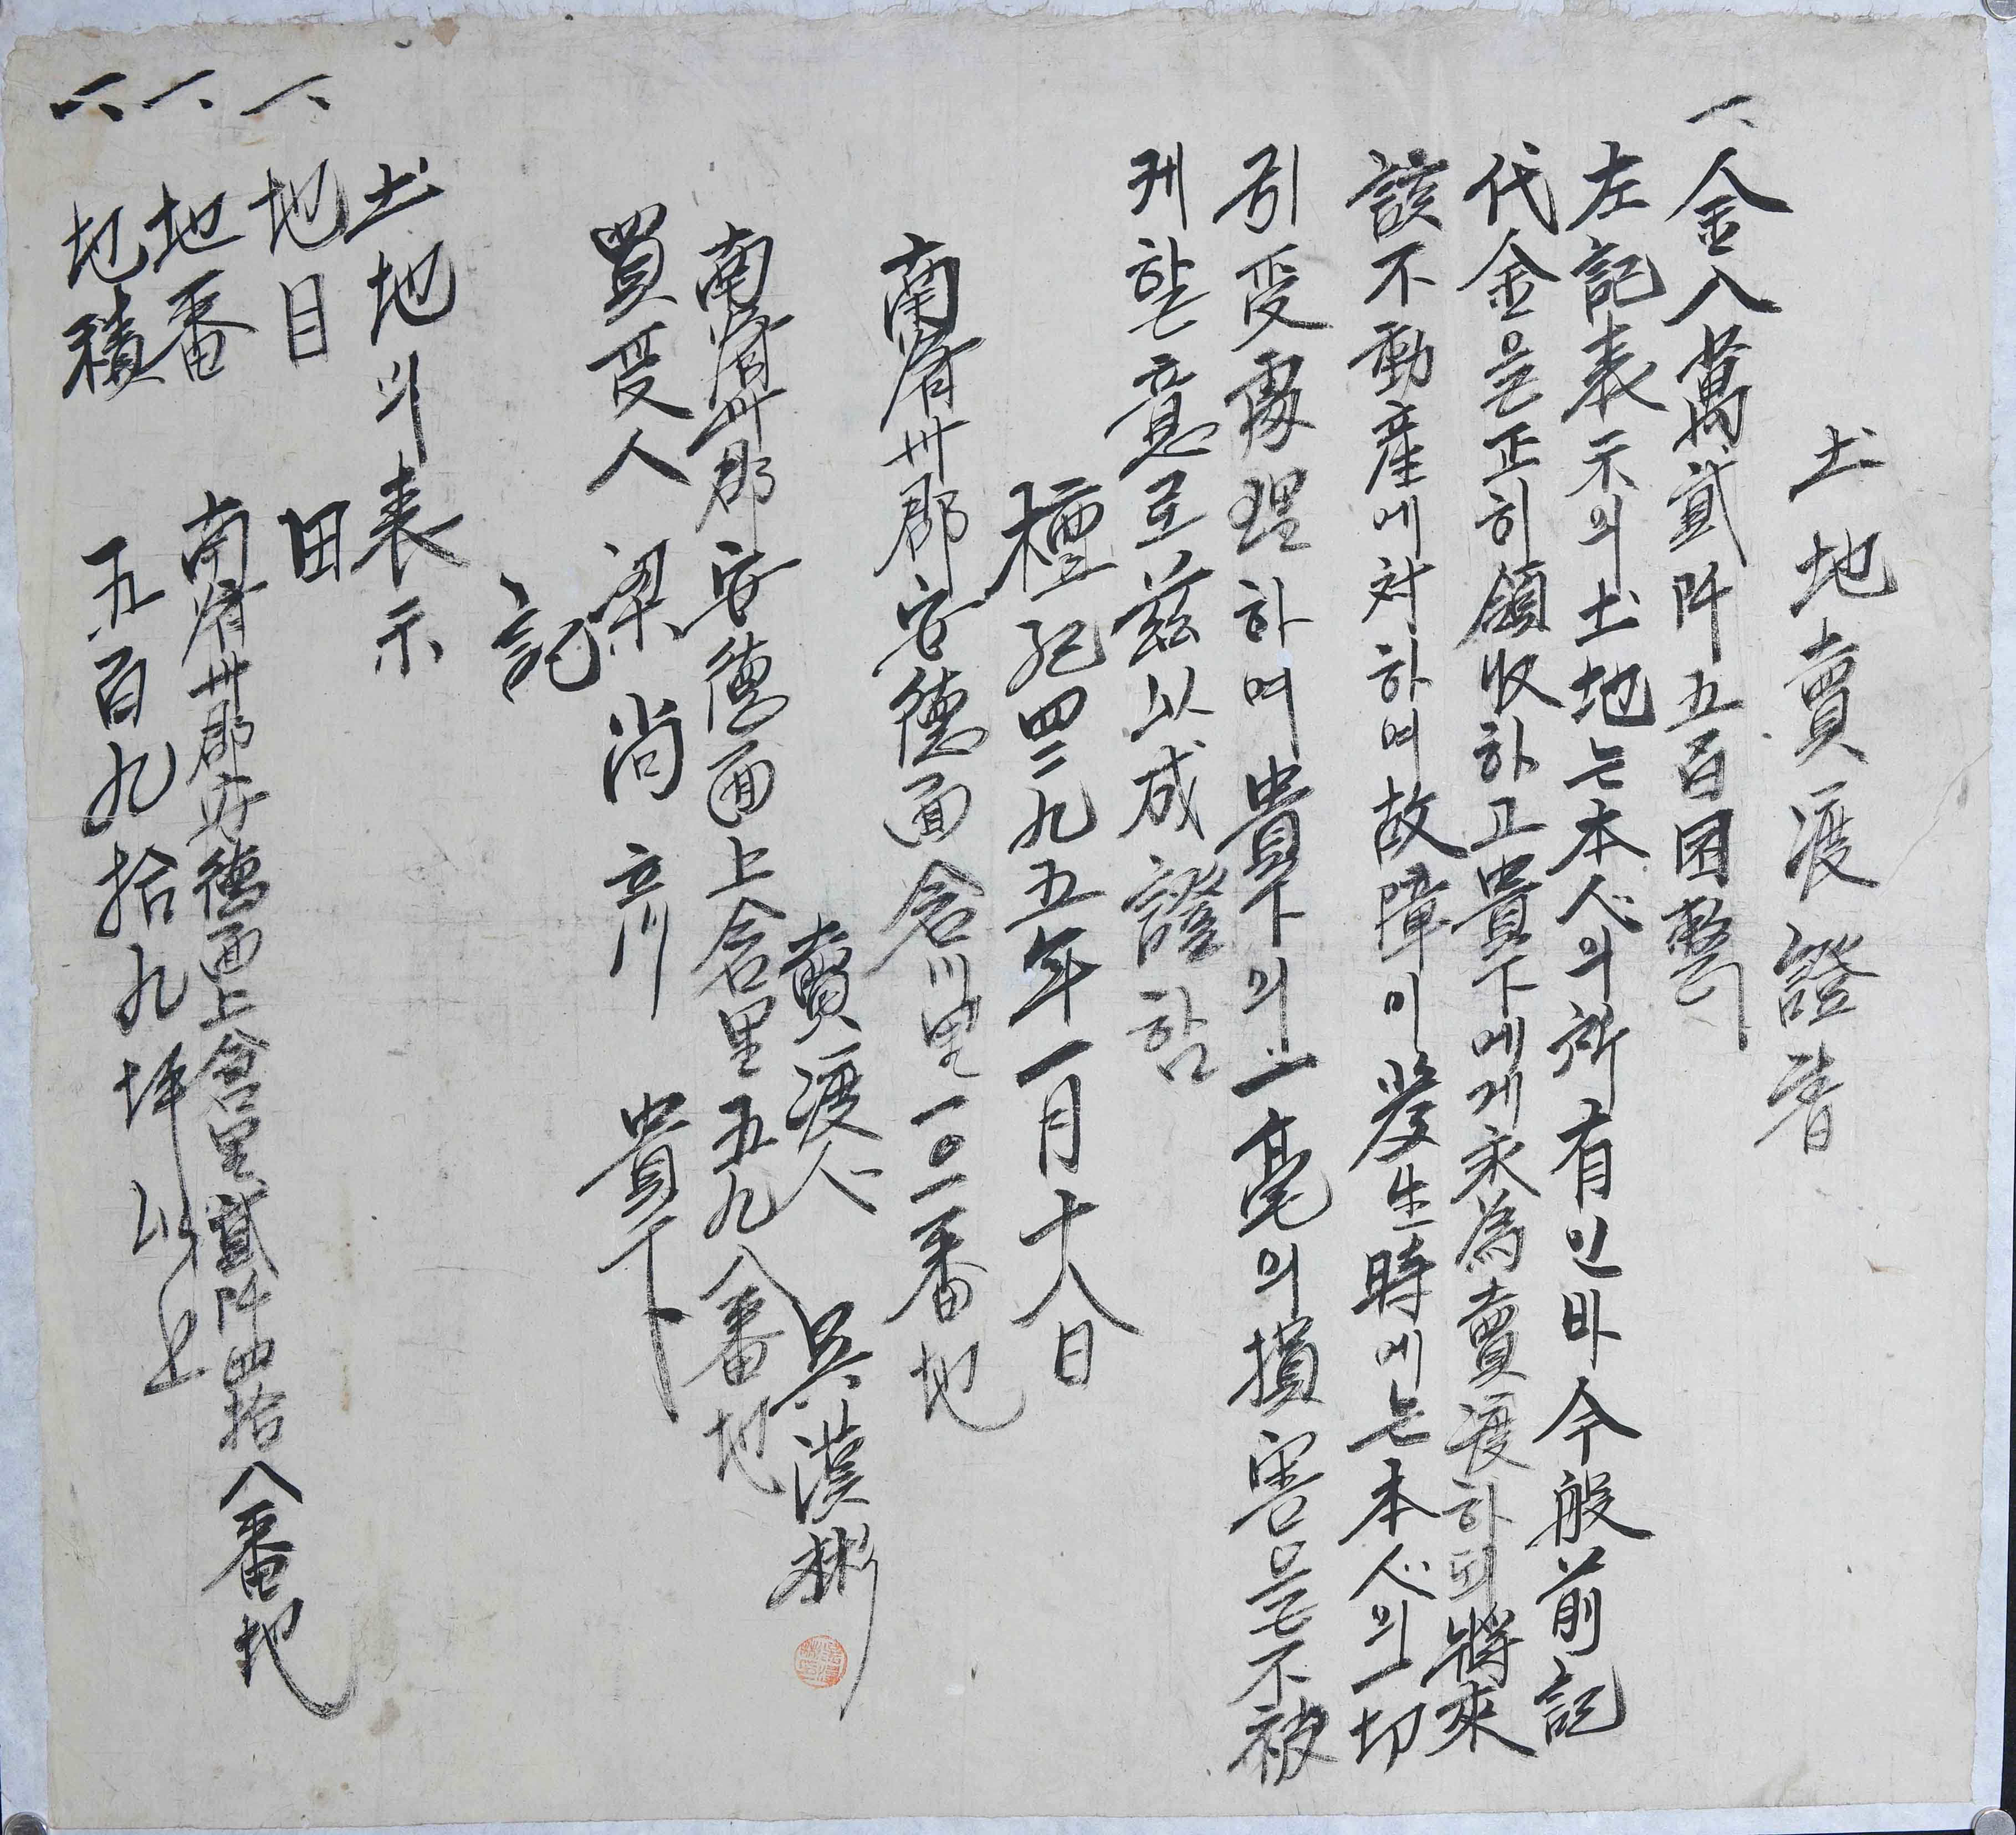 土地賣渡證書
一、金八萬貳阡五百圜整
左記表示의土地는本人의所有인바今般前記
代金을正히領收하고貴下에게永爲賣渡하되將來
該不動産에対하여故障이發生時에는本人의一切
引受處理하며貴下의一毫의損害을不被
케할意로玆以成證함
檀紀四二九五年一月十八日
南濟州郡安德面倉川里一〇一番地
賣渡人 吳漢彬
南濟州郡安德面上倉里五九八番地
買受人 梁尚 貴下
記
土地의表示
一、地目 田
一、地番 南濟州郡安德面上倉里貳阡四拾八番地
一、地積 五百九拾九坪 以上